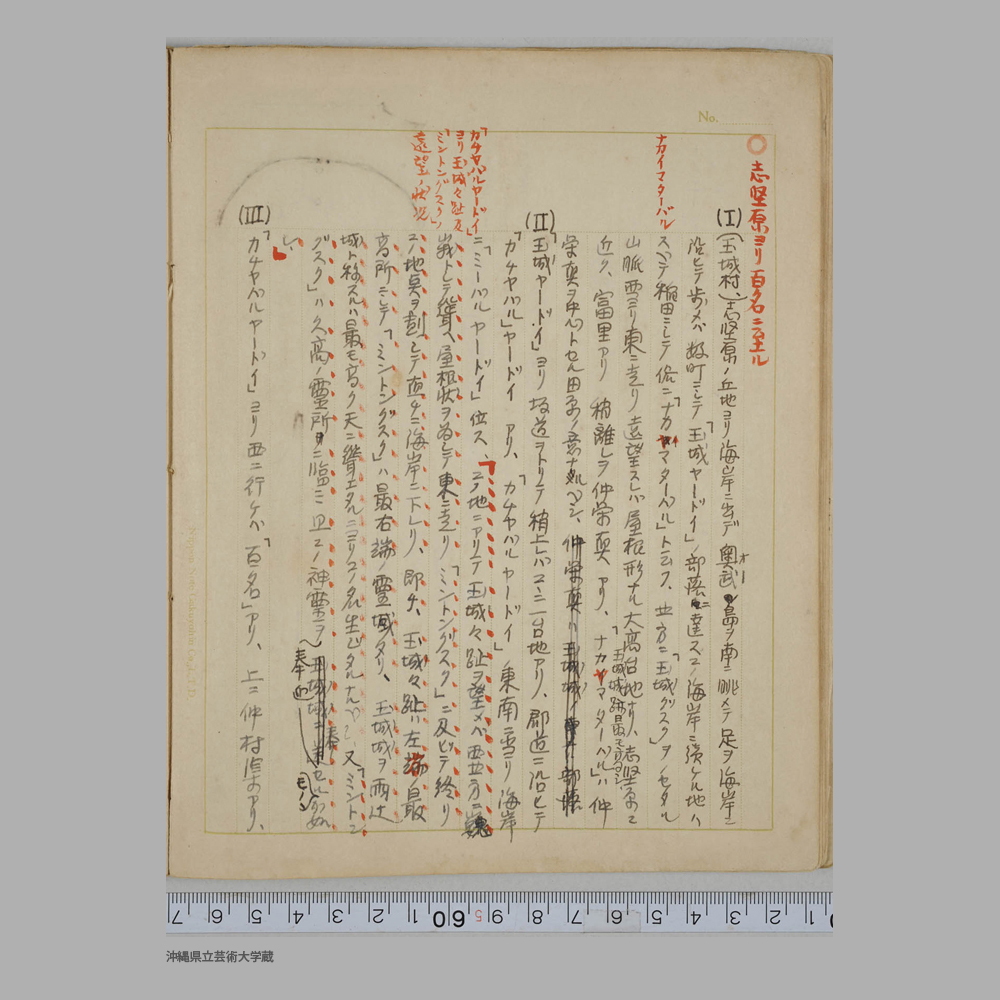 No.
志堅原ヨリ百名ニ至ル
(I)(玉城村、)志堅原ノ丘地ヨリ海岸ニ出デ奥武島ヲ南ニ眺メテ足ヲ海岸ニ
オー
沿ヒテ歩メバ数町ニシテ「玉城ヤードイ」ノ部落ニ達スコノ海岸ニ瀕ケル地ハ
ナカイマターバル
スベテ稲田ニシテ俗ニ「ナカイマターバル」ト云フ、北方ニ「玉城グスク」ヲ
山脈西ヨリ東ニ走リ遠望スレバ屋根形ナル大高台地アリ、志堅原ニ
玉城城跡最モ
近ク、富里アリ 稍離レテ仲栄真アリ、「ナカイマターバル」ハ仲
栄真ヲ中心トセル田原ノ意ナルベシ、
(II)「玉城ヤードイ」ヨリ坂道ヲトリテ稍上レバココニ一台地アリ、郡道ニ沿ヒテ
「カチヤバル」ヤードイ アリ、「カチヤバルヤードイ」東南ニ当リ海岸
「カチヤバルヤードイ」
ヨリ玉城々趾及
「ミントングスク」
遠望ノ状况
ニ「ミーバルヤードイ」位ス、「コノ地ニアリテ玉城々趾ヲ望メバ西北方ニ巍
峨トシテ聳ヘ屋根状ヲ為シテ東ニ走リ「ミントングスク」ニ及ビテ終リ
コノ地点ヲ劃シテ直チニ海岸ニ下レリ、即チ、玉城々趾ハ左端ノ最
高所ニシテ「ミントングスク」ハ最右端ノ霊域タリ、玉城城ヲ雨辻
城ト称スルハ最モ高ク天ニ聳エタルニヨリコノ名生ジタルナルベシ、又「ミントン
グスク」ハ久高ノ霊所ヲニ臨ミ且コノ神霊ヲ
奉迎
セルモノノ如
シ、」
(III)「カチヤバルヤードイ」ヨリ西ニ行ケバ「百名」アリ、上ニ仲村渠アリ、
7 6 5 4 3 2 1 60 9 8 7 6 5 4 3 2 1
沖縄県立芸術大学蔵